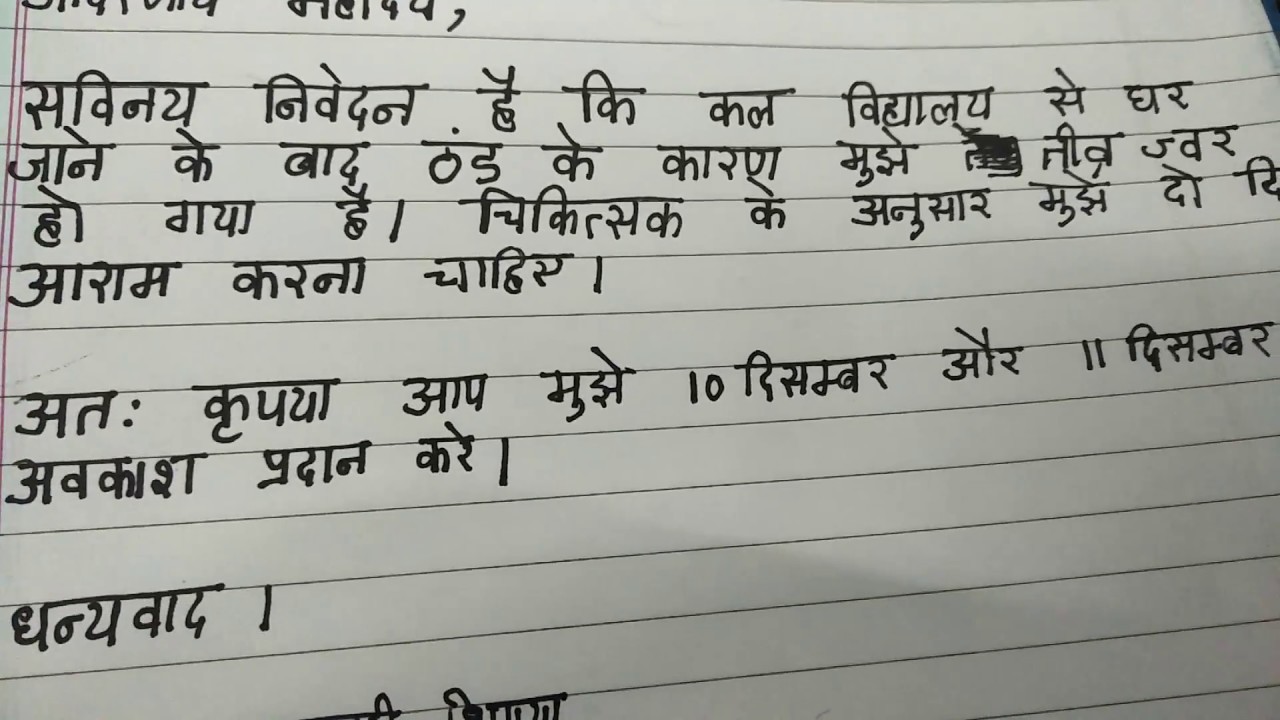 आदरणीय महोदय,
सविनय निवेदन है कि कल विद्यालय से घर
जाने के बाद ठंड के कारण मुझे तीव्र ज्वर
हो गया है। चिकित्सक के अनुसार मुझे दो दि
आराम करना चाहिए।
अतः कृपया आप मुझे 10 दिसम्बर और 11 दिसम्बर
अवकाश प्रदान करे।
धन्यवाद।